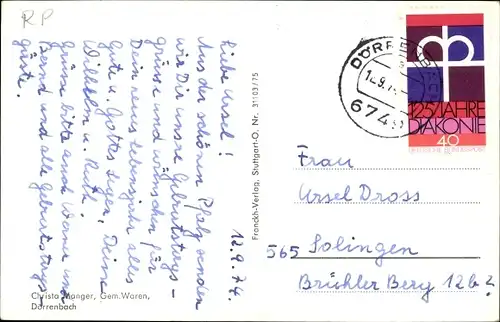 R P
12.9.74
Liebe Ursel!
Aus der schönen Pfalz senden
wir Dir unsre Geburtstags-
grüsse und wünschen für
Dein neues Lebensjahr alles
Gute u. Gottes Segen! Deine
Wilhelm u. Ruth!
Grüsse bitte auch Werner und
Bernd und alle Geburtstags-
gäste.
Christa Manger, Gem.Waren,
Dörrenbach
Franckh-Verlag, Stuttgart-O. Nr. 31103/75
DÖRRENBACH
6749
125 JAHRE
DIAKONIE
DEUTSCHE BUNDESPOST
40
Frau
Ursel Dross
565 Solingen
Brühler Berg 12b